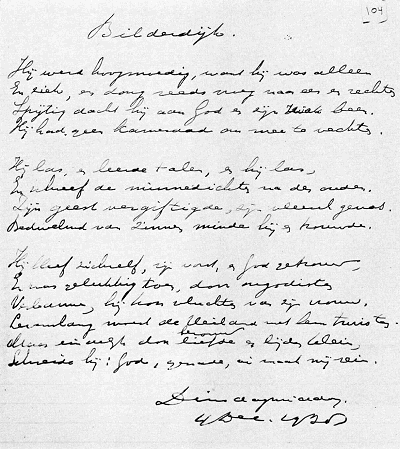 104
Bilderdijk.
Hij werd hoogmoedig, want hij was alleen
En ziek, en dong reeds vroeg naar eer en rechten
Spijtig dacht hij aan God en zijn ziek been.
Hij had geen kameraad om mee te vechten.
Hij las, en leerde talen, en hij las,
En schreef de minnedichten na der ouden.
Zijn geest vergiftigde, zijn vleesch genas.
Bedwelmd van zinnen minde hij en trouwde.
Hij bleef zichzelf, zijn vorst, en God getrouw,
En was gelukkig toen, door
Verbannen, hij kon vluchten van zijn vrouw.
Levenslang moest de Heiland met hem twisten.
Maar eindelijk door liefde en lijden klein,
Schreide hij: God, genade, en maak mij rein.
Dinsdagmiddag
4 Dec.